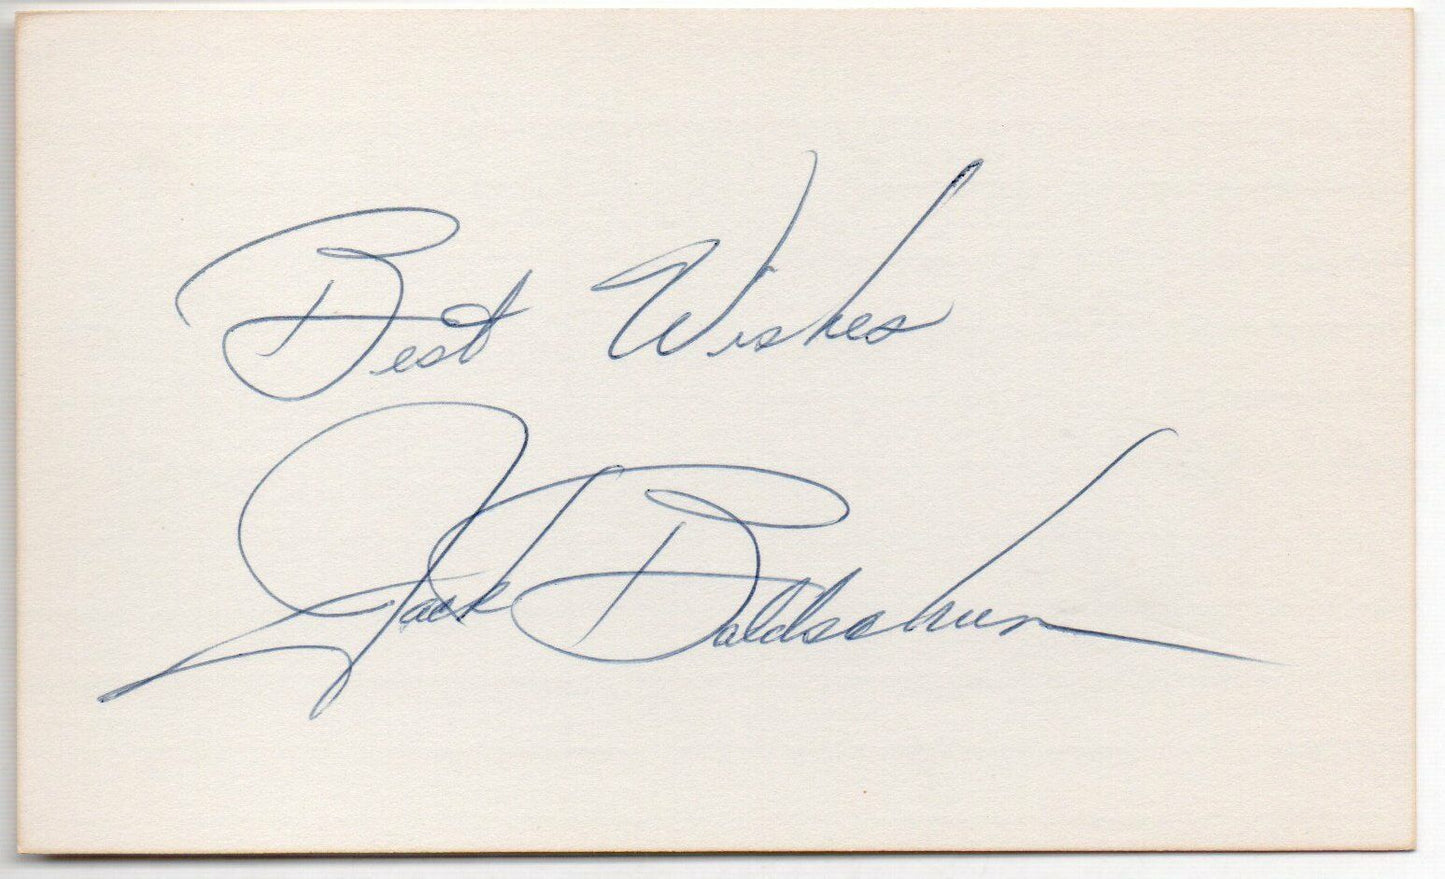 Best Wishes
Jack Baldschun